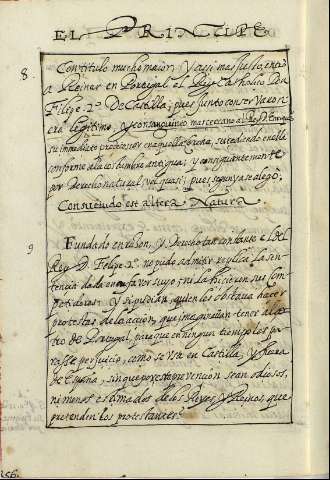 EL PRINCIPE
8. Con titulo mucho maior, y assi mas justo, entró
a Reinar en Portugal el Rey Catholico Don
Felipe 2º De Castilla; pues junto con ser Varon
era legitimo, y consanguineo mas cercano al Rey D. Enrique
su immediato predecesor en aquella Corona, sucediendo en ella
conforme a la costumbre antigua, y consiguientemente
por Derecho natural, vel quasi; pues segun ya se alegó;
Consuetudo est altera Natura
9 Fundado en razon, y Derecho tan constante el del
Rey D. Felipe 2º no pudo admitir replica la sen
tencia dada en su favor suyo; ni la hicieron sus com
petidores; y si pudieran, quien les obstava hacer
protestas de la accion, que imaginavan tener al
de Portugal, para que en ningun tiempo les pa
rasse perjuicio, como se usa en Castilla, y fuera
de España, sin que por esta prevencion sean odiosos,
ni menos estimados de los Reyes, y Reinos, que
pretenden los protestantes?